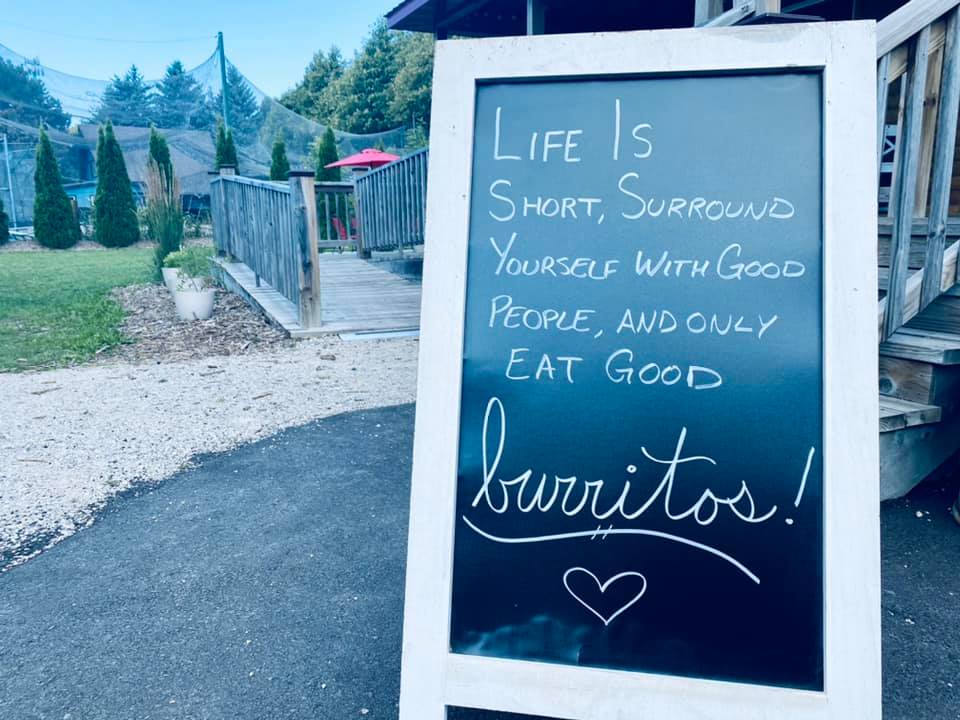 Life Is
Short, Surround
Yourself With Good
People, and only
Eat Good
burritos!